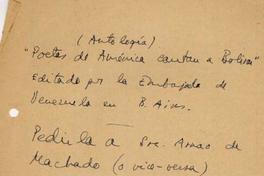 (Antología)
"Poetas de América cantan a Bolívar"
Editado por la Embajada de
Venezuela en B. Aires.
Pedirla a Sra. Arnao de
Machado (o vice-versa)